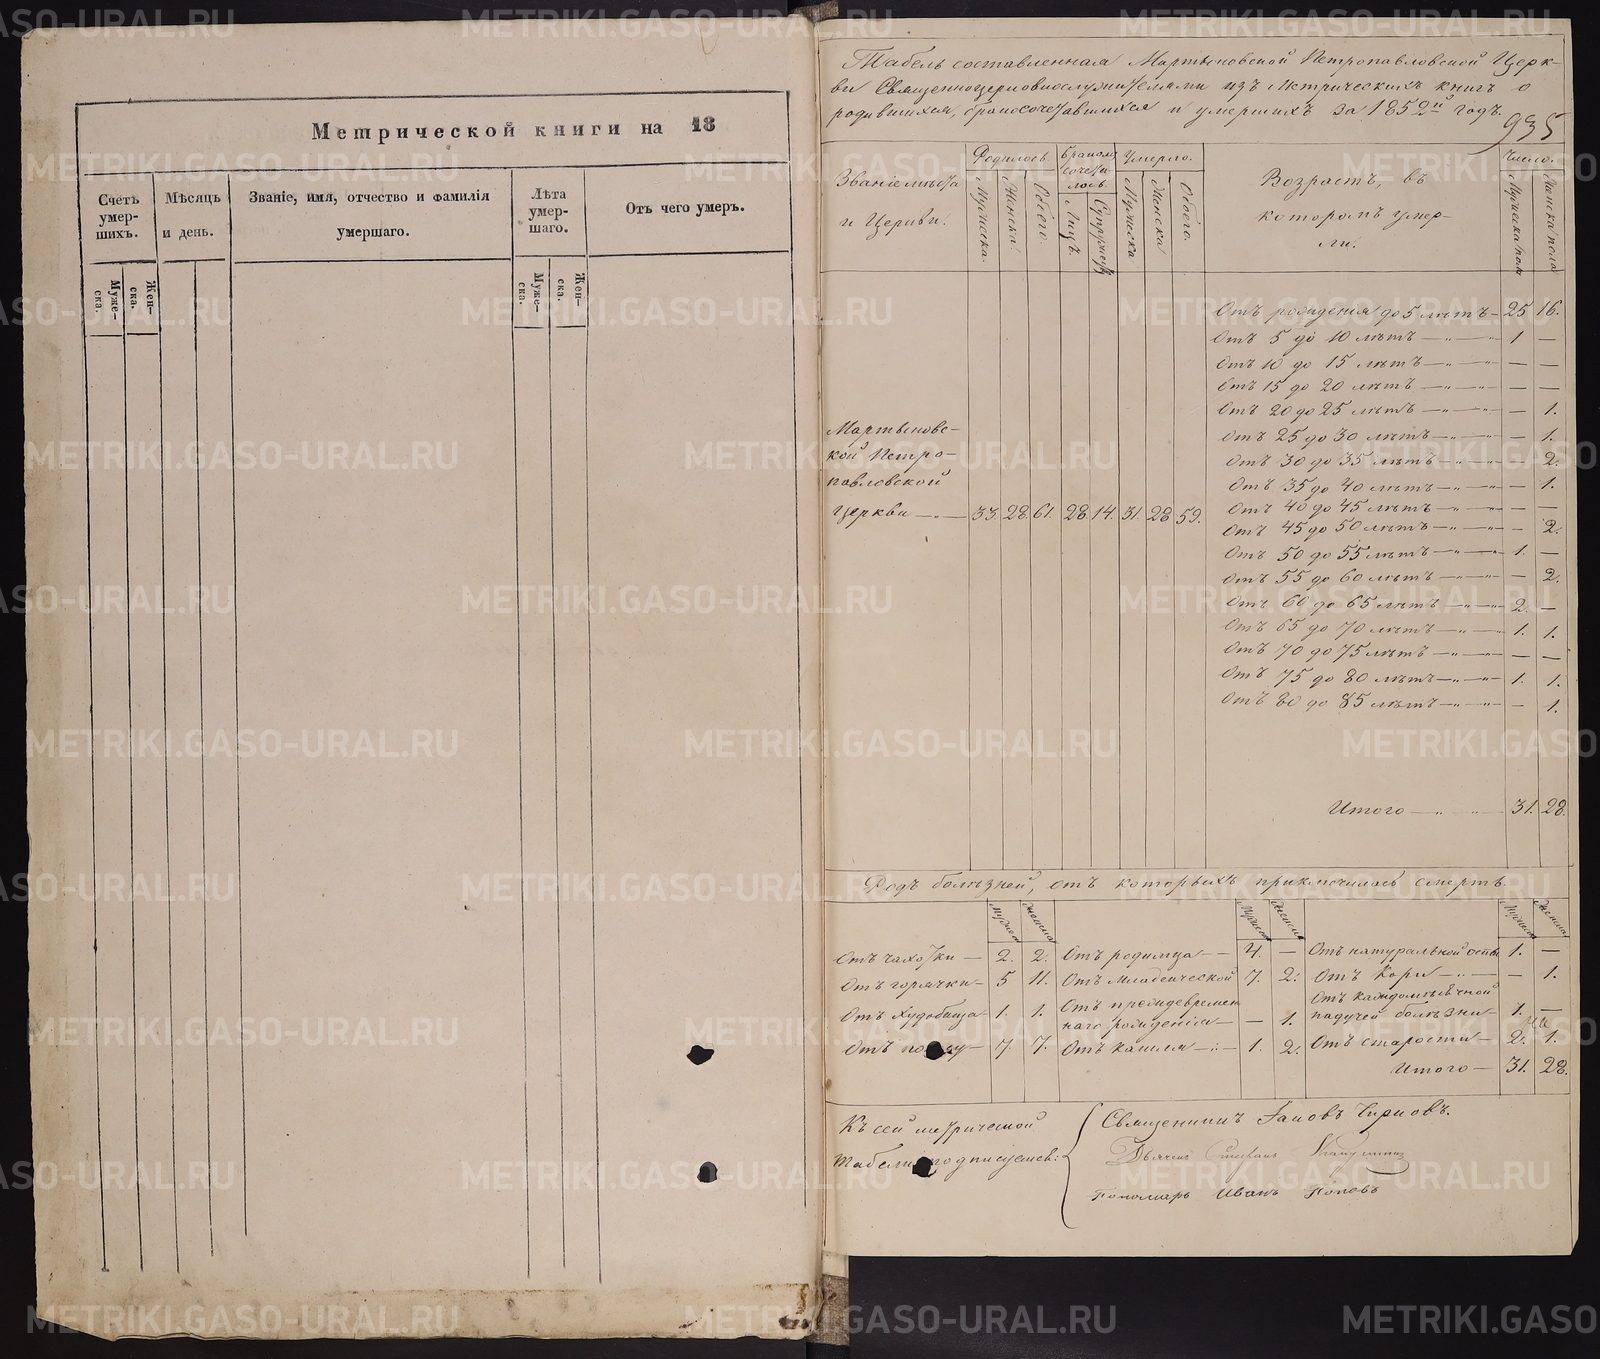 Метрической книги на 18
Счетъ умер- шихъ.
Мѣсяцъ и день.
Званіе, имя, отчество и фамилія умершаго.
Лѣта умер- шаго.
Отъ чего умеръ.
Муже- ска.
Жен- ска.
Муже- ска.
Жен- ска.
Табель составленная Мартыновской Петропавловской Церк-
ви Священноцерковнослужителями изъ Метрическихъ книгъ о
родившихся, бракосочетавшихся и умершихъ за 1852й годъ.
935
Званіе мѣста и Церкви.
Родилось.
Мужеска.
Женска.
Обоего.
Бракомъ сочета- лось.
Лицъ.
Супружествъ
Умерло.
Мужеска
Женска.
Обоего.
Возрастъ, въ которомъ умер- ли.
Число.
Мужеска пола
Женска пола
Мартыновс-
кой Петро-
павловской
Церкви — 33. 28. 61. 28. 14. 31. 28. 59.
Отъ рожденія до 5 лѣтъ — 25 16.
Отъ 5 до 10 лѣтъ — „ — 1 —
Отъ 10 до 15 лѣтъ — „ — — —
Отъ 15 до 20 лѣтъ — „ — — —
Отъ 20 до 25 лѣтъ — „ — — 1.
Отъ 25 до 30 лѣтъ — „ — — 1.
Отъ 30 до 35 лѣтъ — „ — — 2.
Отъ 35 до 40 лѣтъ — „ — — 1.
Отъ 40 до 45 лѣтъ — „ — — —
Отъ 45 до 50 лѣтъ — „ — — 2.
Отъ 50 до 55 лѣтъ — „ — 1. —
Отъ 55 до 60 лѣтъ — „ — — 2.
Отъ 60 до 65 лѣтъ — „ — 2. —
Отъ 65 до 70 лѣтъ — „ — 1. 1.
Отъ 70 до 75 лѣтъ — „ — — —
Отъ 75 до 80 лѣтъ — „ — 1. 1.
Отъ 80 до 85 лѣтъ — „ — — 1.
Итого — „ — 31. 28.
Родъ болѣзней, отъ которыхъ приключилась смерть.
Мужеска Женска Мужеска Женска Мужеска Женска
Отъ чахотки — 2. 2. Отъ родимца — 4. — Отъ натуральной оспы 1. —
Отъ горячки — 5 11. Отъ младенческой 7. 2. Отъ Кори — „ — — 1.
Отъ Худобища — 1. 1. Отъ преждевремен наго рожденія — — 1. Отъ каждомѣсячной падучей болѣзни — 1. —
Отъ 7. 7. Отъ кашля — 1. 2. Отъ старости — 2. 1.
Итого — 31. 28.
Къ сей метрической
табели подписуемся:
Священникъ Іаковъ
Дьячекъ Стефанъ
Пономарь Иванъ Поповъ
METRIKI.GASO-URAL.RU